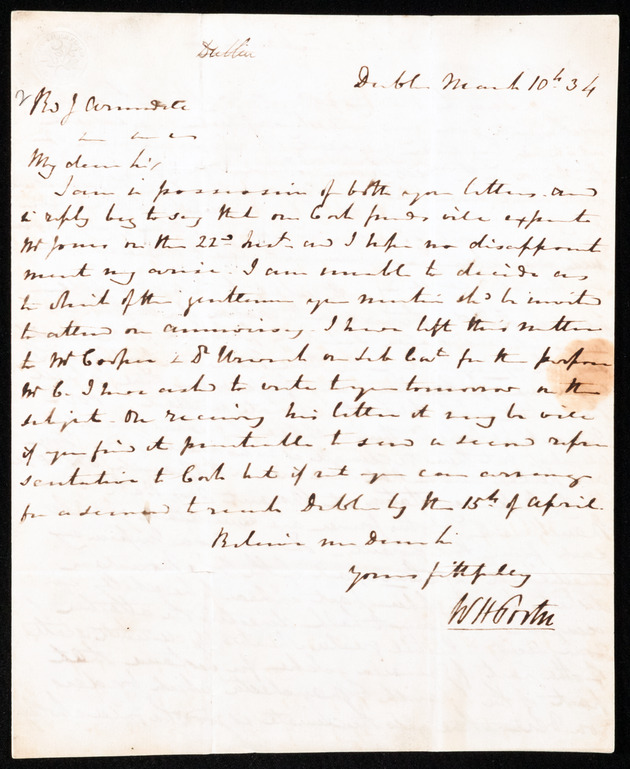 Dublin
Dublin March 10th 34
Rev J Arundel
My dear Sir,
I am in possession of both your letters and
in reply beg to say that our Cork friends will expect
Mr Jones on the 22nd Inst and I hope no disappoint
ment may arise. I am unable to decide as
to which of the gentlemen you mention shd be invited
to attend our anniversary. I have left this matter
to Mr Cooper & Dr Urwick our Sub Comt for the purpose
Mr C. I have asked to write to you tomorrow on the
subject. On receiving his letter it may be well
if you find it practicable to send a second repre
sentative to Cork but if not you can arrange
for a second to reach Dublin by the 15th of April.
Believe me Dear Sir
Yours faithfully
W H Porter